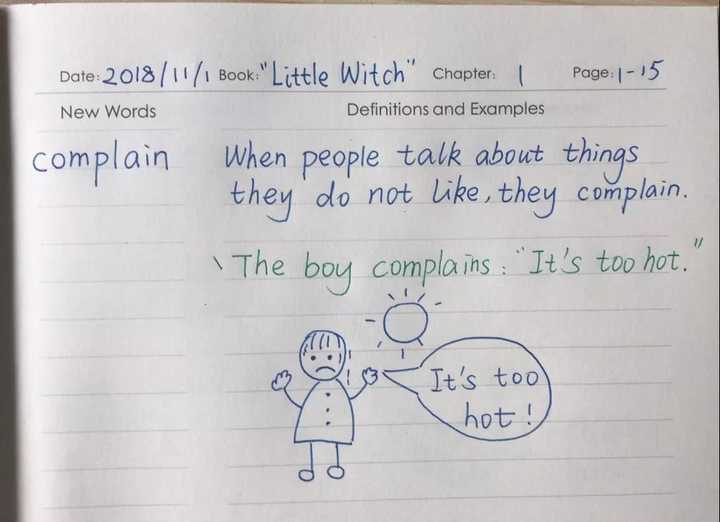 Date: 2018/11/1 Book: "Little Witch" Chapter: 1 Page: 1-15
New Words Definitions and Examples
complain When people talk about things
they do not like, they complain.
\ The boy complains : "It's too hot."
It's too
hot!